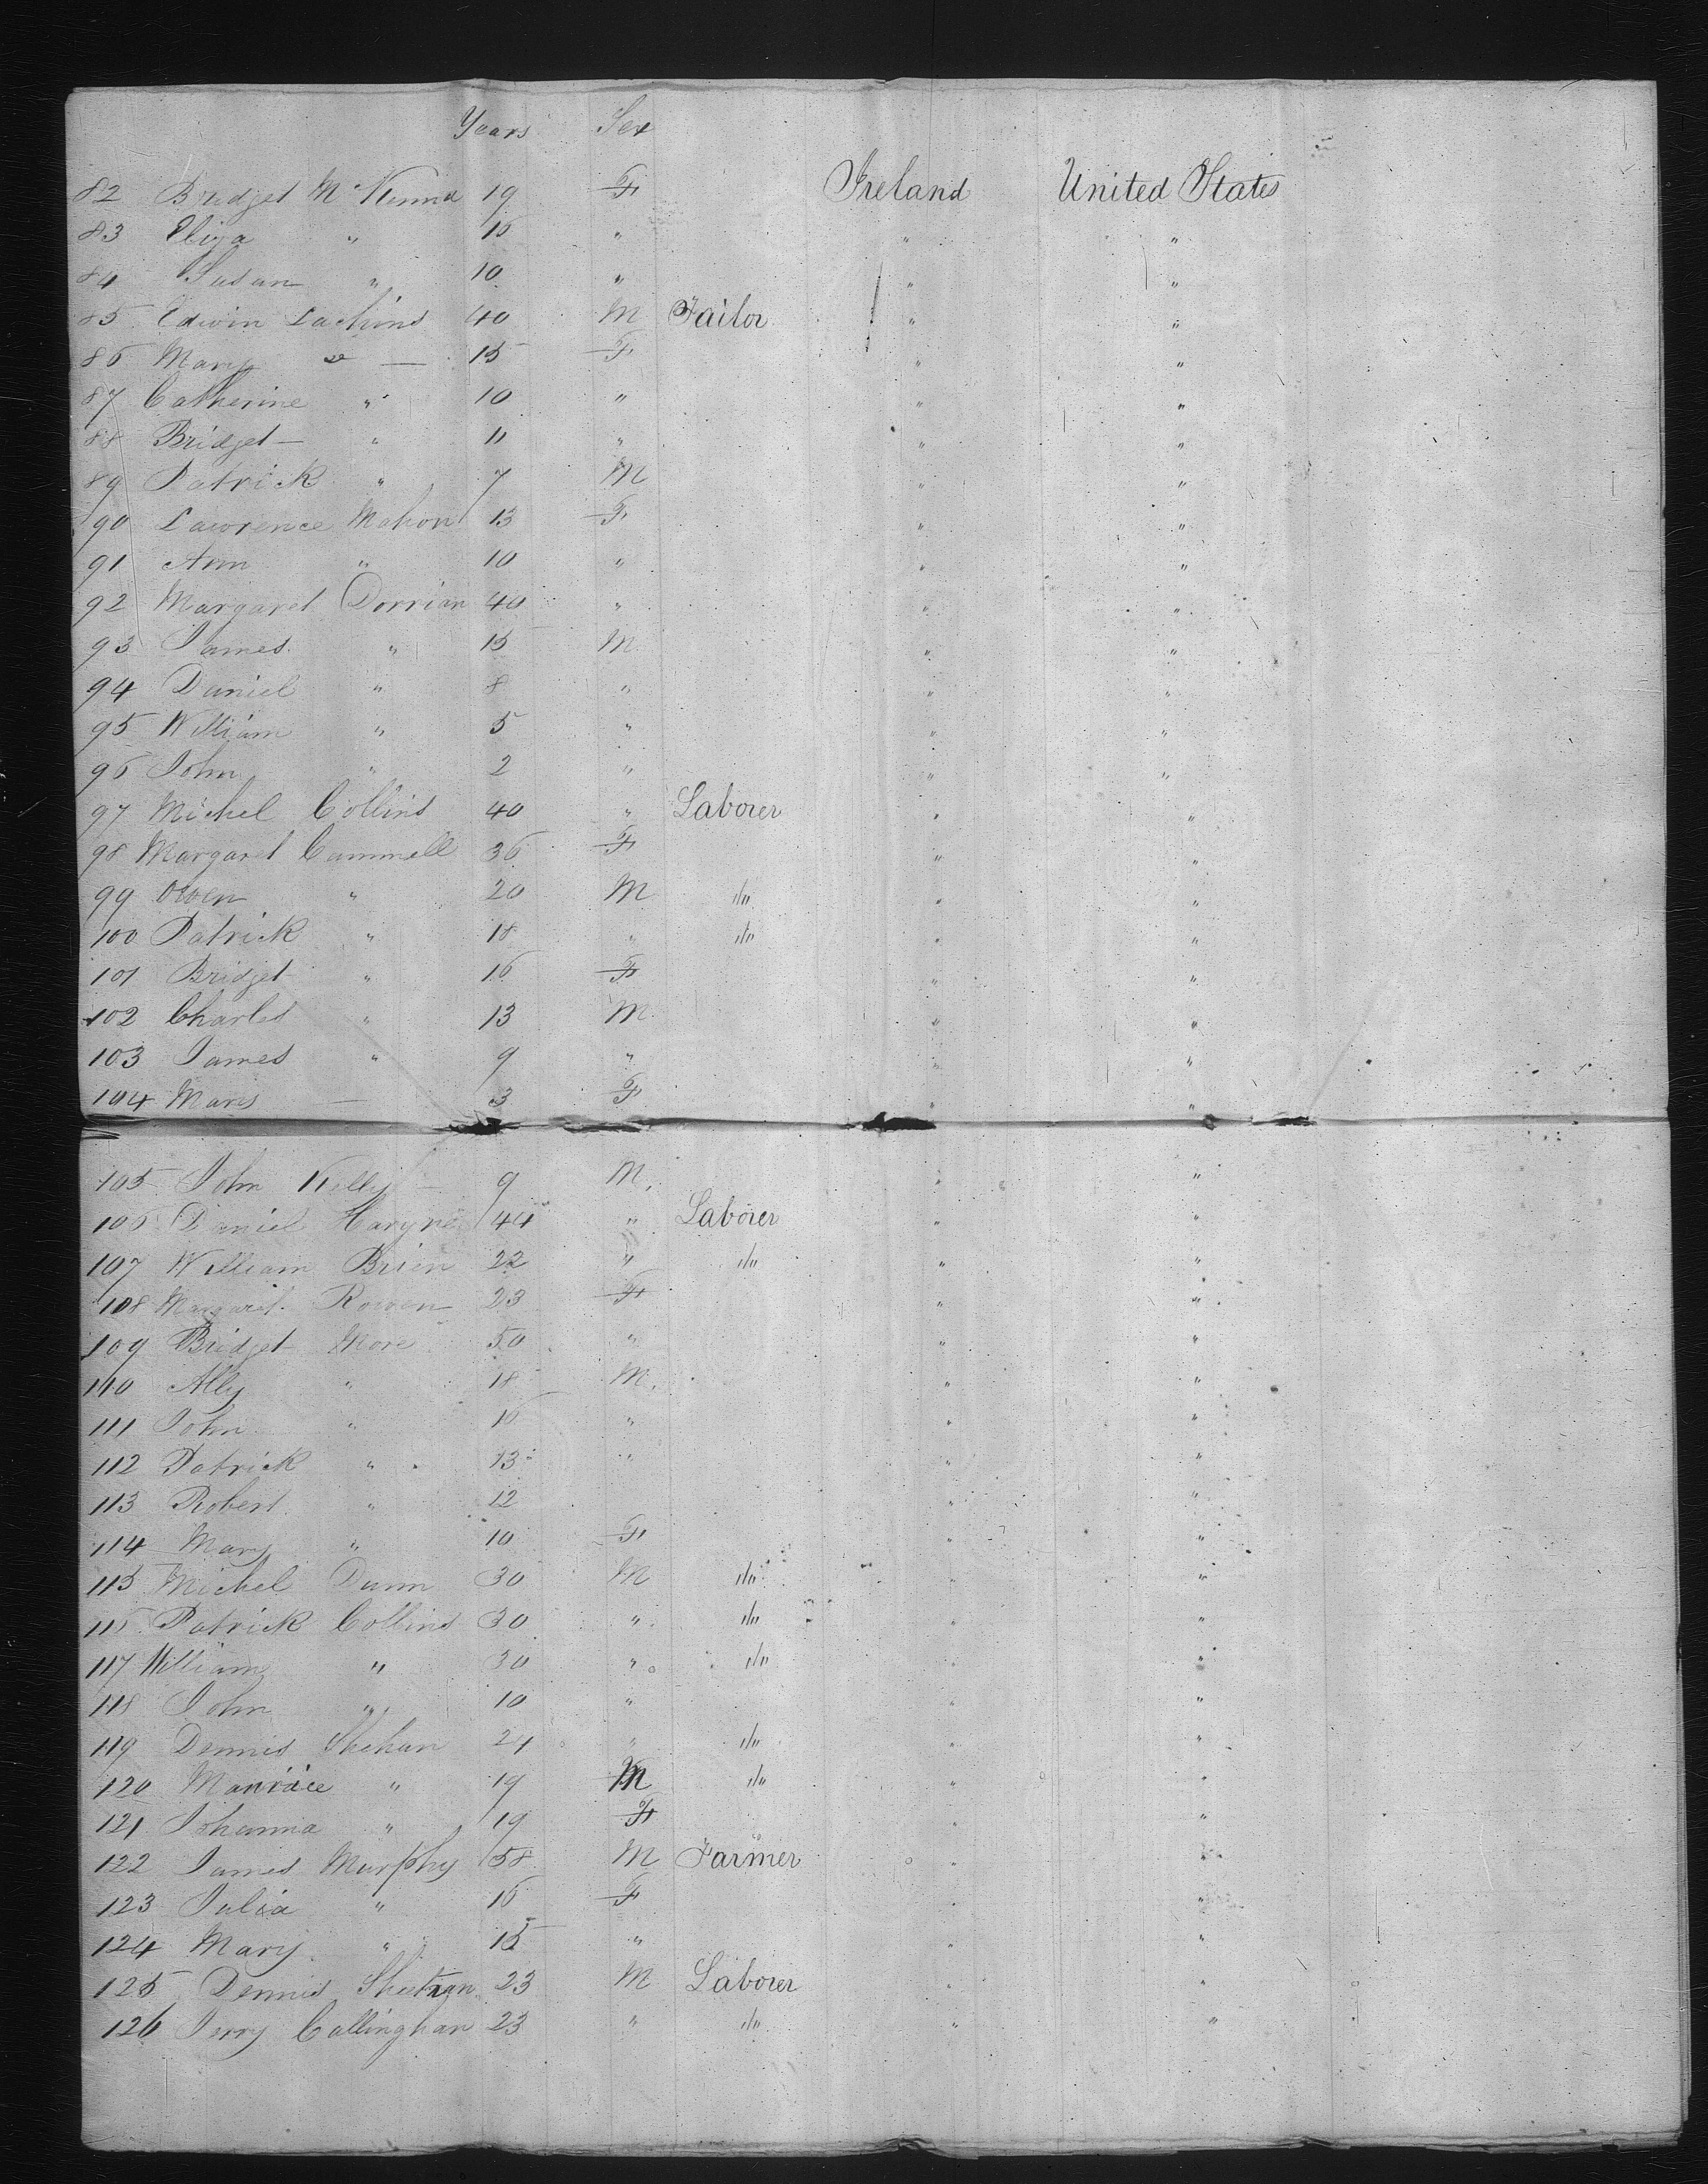 Years Sex
82 Bridget McKenna 19 F Ireland United States
83 Eliza " 16 " " "
84 Susan " 10 " " "
85 Edwin Lachins 40 M Tailor " "
86 Mary " — 15 F " "
87 Catherine " 10 " " "
88 Bridget " 11 " " "
89 Patrick " 7 M " "
90 Lawrence Mahon 13 F " "
91 Ann " 10 " " "
92 Margaret Dorrian 40 " " "
93 James " 15 M " "
94 Daniel " 8 " " "
95 William " 5 " " "
96 John " 2 " " "
97 Michel Collins 40 " Laborer " "
98 Margaret Cammell 36 F " "
99 Owen " 20 M "/" " "
100 Patrick " 18 " "/" " "
101 Bridget " 16 F " "
102 Charles " 13 M " "
103 James " 9 " " "
104 Mary — 3 F " "
105 John Kelly 9 M " "
106 Daniel 44 " Laborer " "
107 William Brien 22 " "/" " "
108 Margaret Rowen 23 F " "
109 Bridget More 50 " " "
110 Ally " 18 M " "
111 John " 16 " " "
112 Patrick " 13 " " "
113 Robert " 12 " "
114 Mary " 10 F " "
115 Michel Dunn 30 M "/" " "
116 Patrick Collins 30 " "/" " "
117 William " 30 " "/" " "
118 John " 10 " " "
119 Dennis Shehan 21 " "/" " "
120 Maurice " 19 M "/" " "
121 Johanna " 19 F " "
122 James Murphy 58 M Farmer " "
123 Julia " 16 F " "
124 Mary " 15 " " "
125 Dennis Sheehan 23 M Laborer " "
126 Jerry Callinghan 23 " "/" " "